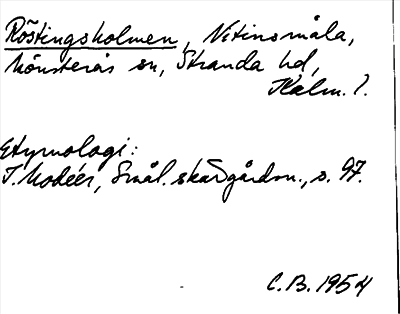 Röstingsholmen, Vitinsmåla,
Mönsterås sn, Stranda hd,
Kalm. l.
Etymologi:
I. Modéer, Smål. skärgårdsn., s. 97.
C.B. 1954